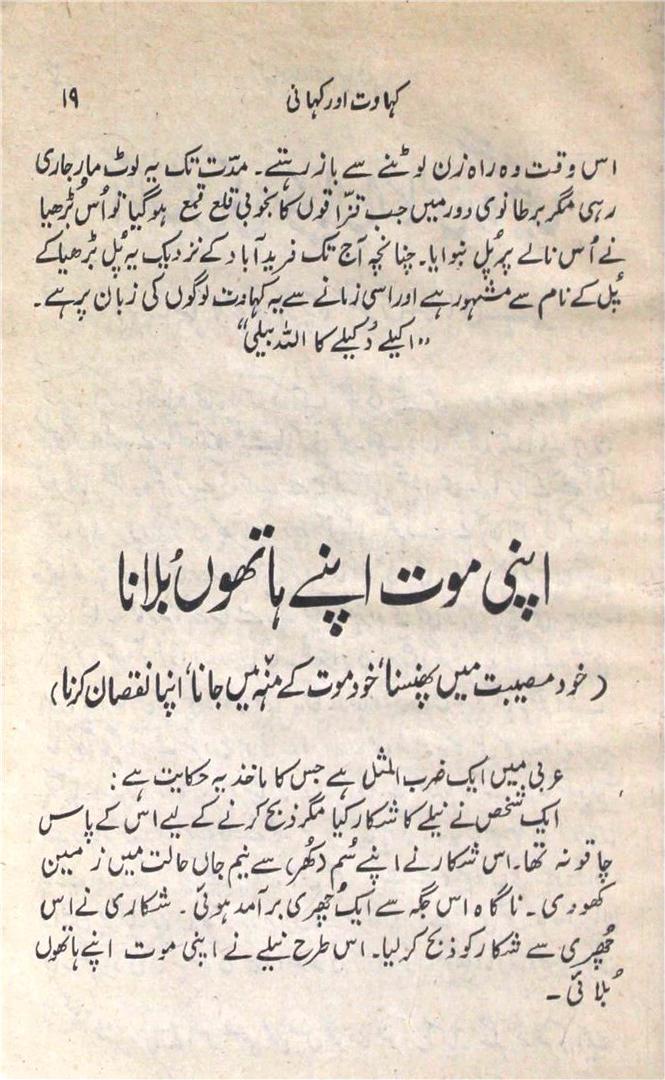 کہاوت اور کہانی ۱۹
اس وقت وہ راہ زن لوٹنے سے باز رہتے۔ مدّت تک یہ لوٹ مار جاری
رہی مگر برطانوی دور میں جب قزّاقوں کا بخوبی قلع قمع ہو گیا تو اُس بُڑھیا
نے اُس نالے پر پُل بنوایا۔ چنانچہ آج تک فریدآباد کے نزدیک یہ پُل بڑھیا کے
پُل کے نام سے مشہور ہے اور اسی زمانے سے یہ کہاوت لوگوں کی زبان پر ہے۔
”اکیلے دُکیلے کا اللہ بیلی“
اپنی موت اپنے ہاتھوں بُلانا
(خود مصیبت میں پھنسنا، خود موت کے منہ میں جانا، اپنا نقصان کرنا)
عربی میں ایک ضرب المثل ہے جس کا ماخذ یہ حکایت ہے:
ایک شخص نے نیلے کا شکار کیا مگر ذبح کرنے کے لیے اس کے پاس
چاقو نہ تھا۔ اس شکار نے اپنے سُم (کھُر) سے نیم جاں حالت میں زمین
کھودی۔ ناگاہ اس جگہ سے ایک چھُری برآمد ہوئی۔ شکاری نے اس
چھُری سے شکار کو ذبح کر لیا۔ اس طرح نیلے نے اپنی موت اپنے ہاتھوں
بُلائی۔